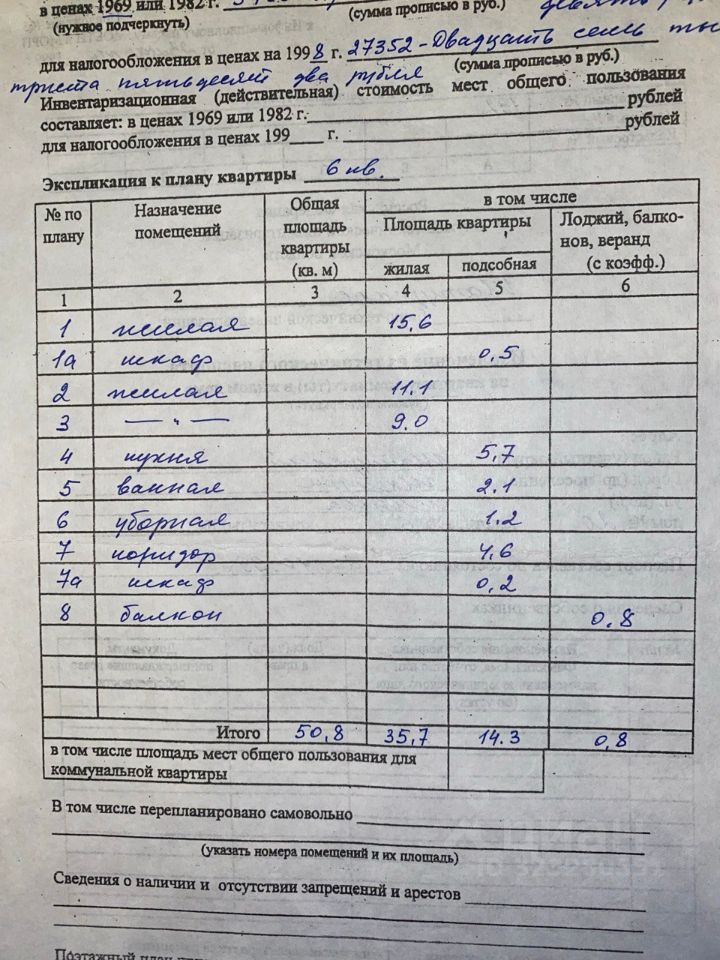 в ценах 1969 или 1982 г.
(нужное подчеркнуть) (сумма прописью в руб.)
для налогообложения в ценах на 1998 г. 27352 - Двадцать семь ты
триста пятьдесят два рубля (сумма прописью в руб.)
Инвентаризационная (действительная) стоимость мест общего пользования
составляет: в ценах 1969 или 1982 г. рублей
для налогообложения в ценах 199 г. рублей
Экспликация к плану квартиры 6 кв.
№ по плану Назначение помещений Общая площадь квартиры (кв. м) в том числе
Площадь квартиры Лоджий, балконов, веранд (с коэфф.)
жилая подсобная
1 2 3 4 5 6
1 жилая 15,6
1а шкаф 0,5
2 жилая 11.1
3 — " — 9.0
4 кухня 5,7
5 ванная 2.1
6 уборная 1.2
7 коридор 4,6
7а шкаф 0,2
8 балкон 0,8
Итого 50,8 35,7 14.3 0,8
в том числе площадь мест общего пользования для
коммунальной квартиры
В том числе перепланировано самовольно
(указать номера помещений и их площадь)
Сведения о наличии и отсутствии запрещений и арестов
Поэтажный план